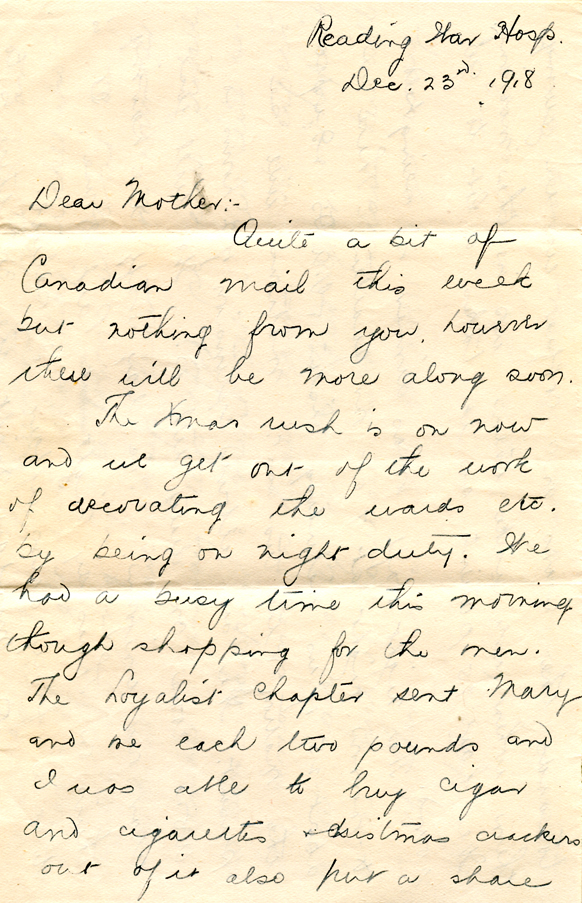 Reading War Hosp.
Dec. 23rd. 1918
Dear Mother:-
Quite a bit of
Canadian mail this week
but nothing from you, however
there will be more along soon.
The Xmas rush is on now
and we get out of the work
of decorating the wards etc.
by being on night duty. We
had a busy time this morning
though shopping for the men.
The Loyalist Chapter sent Mary
and me each two pounds and
I was able to buy cigar
and cigarettes & Christmas crackers
out of it also put a share